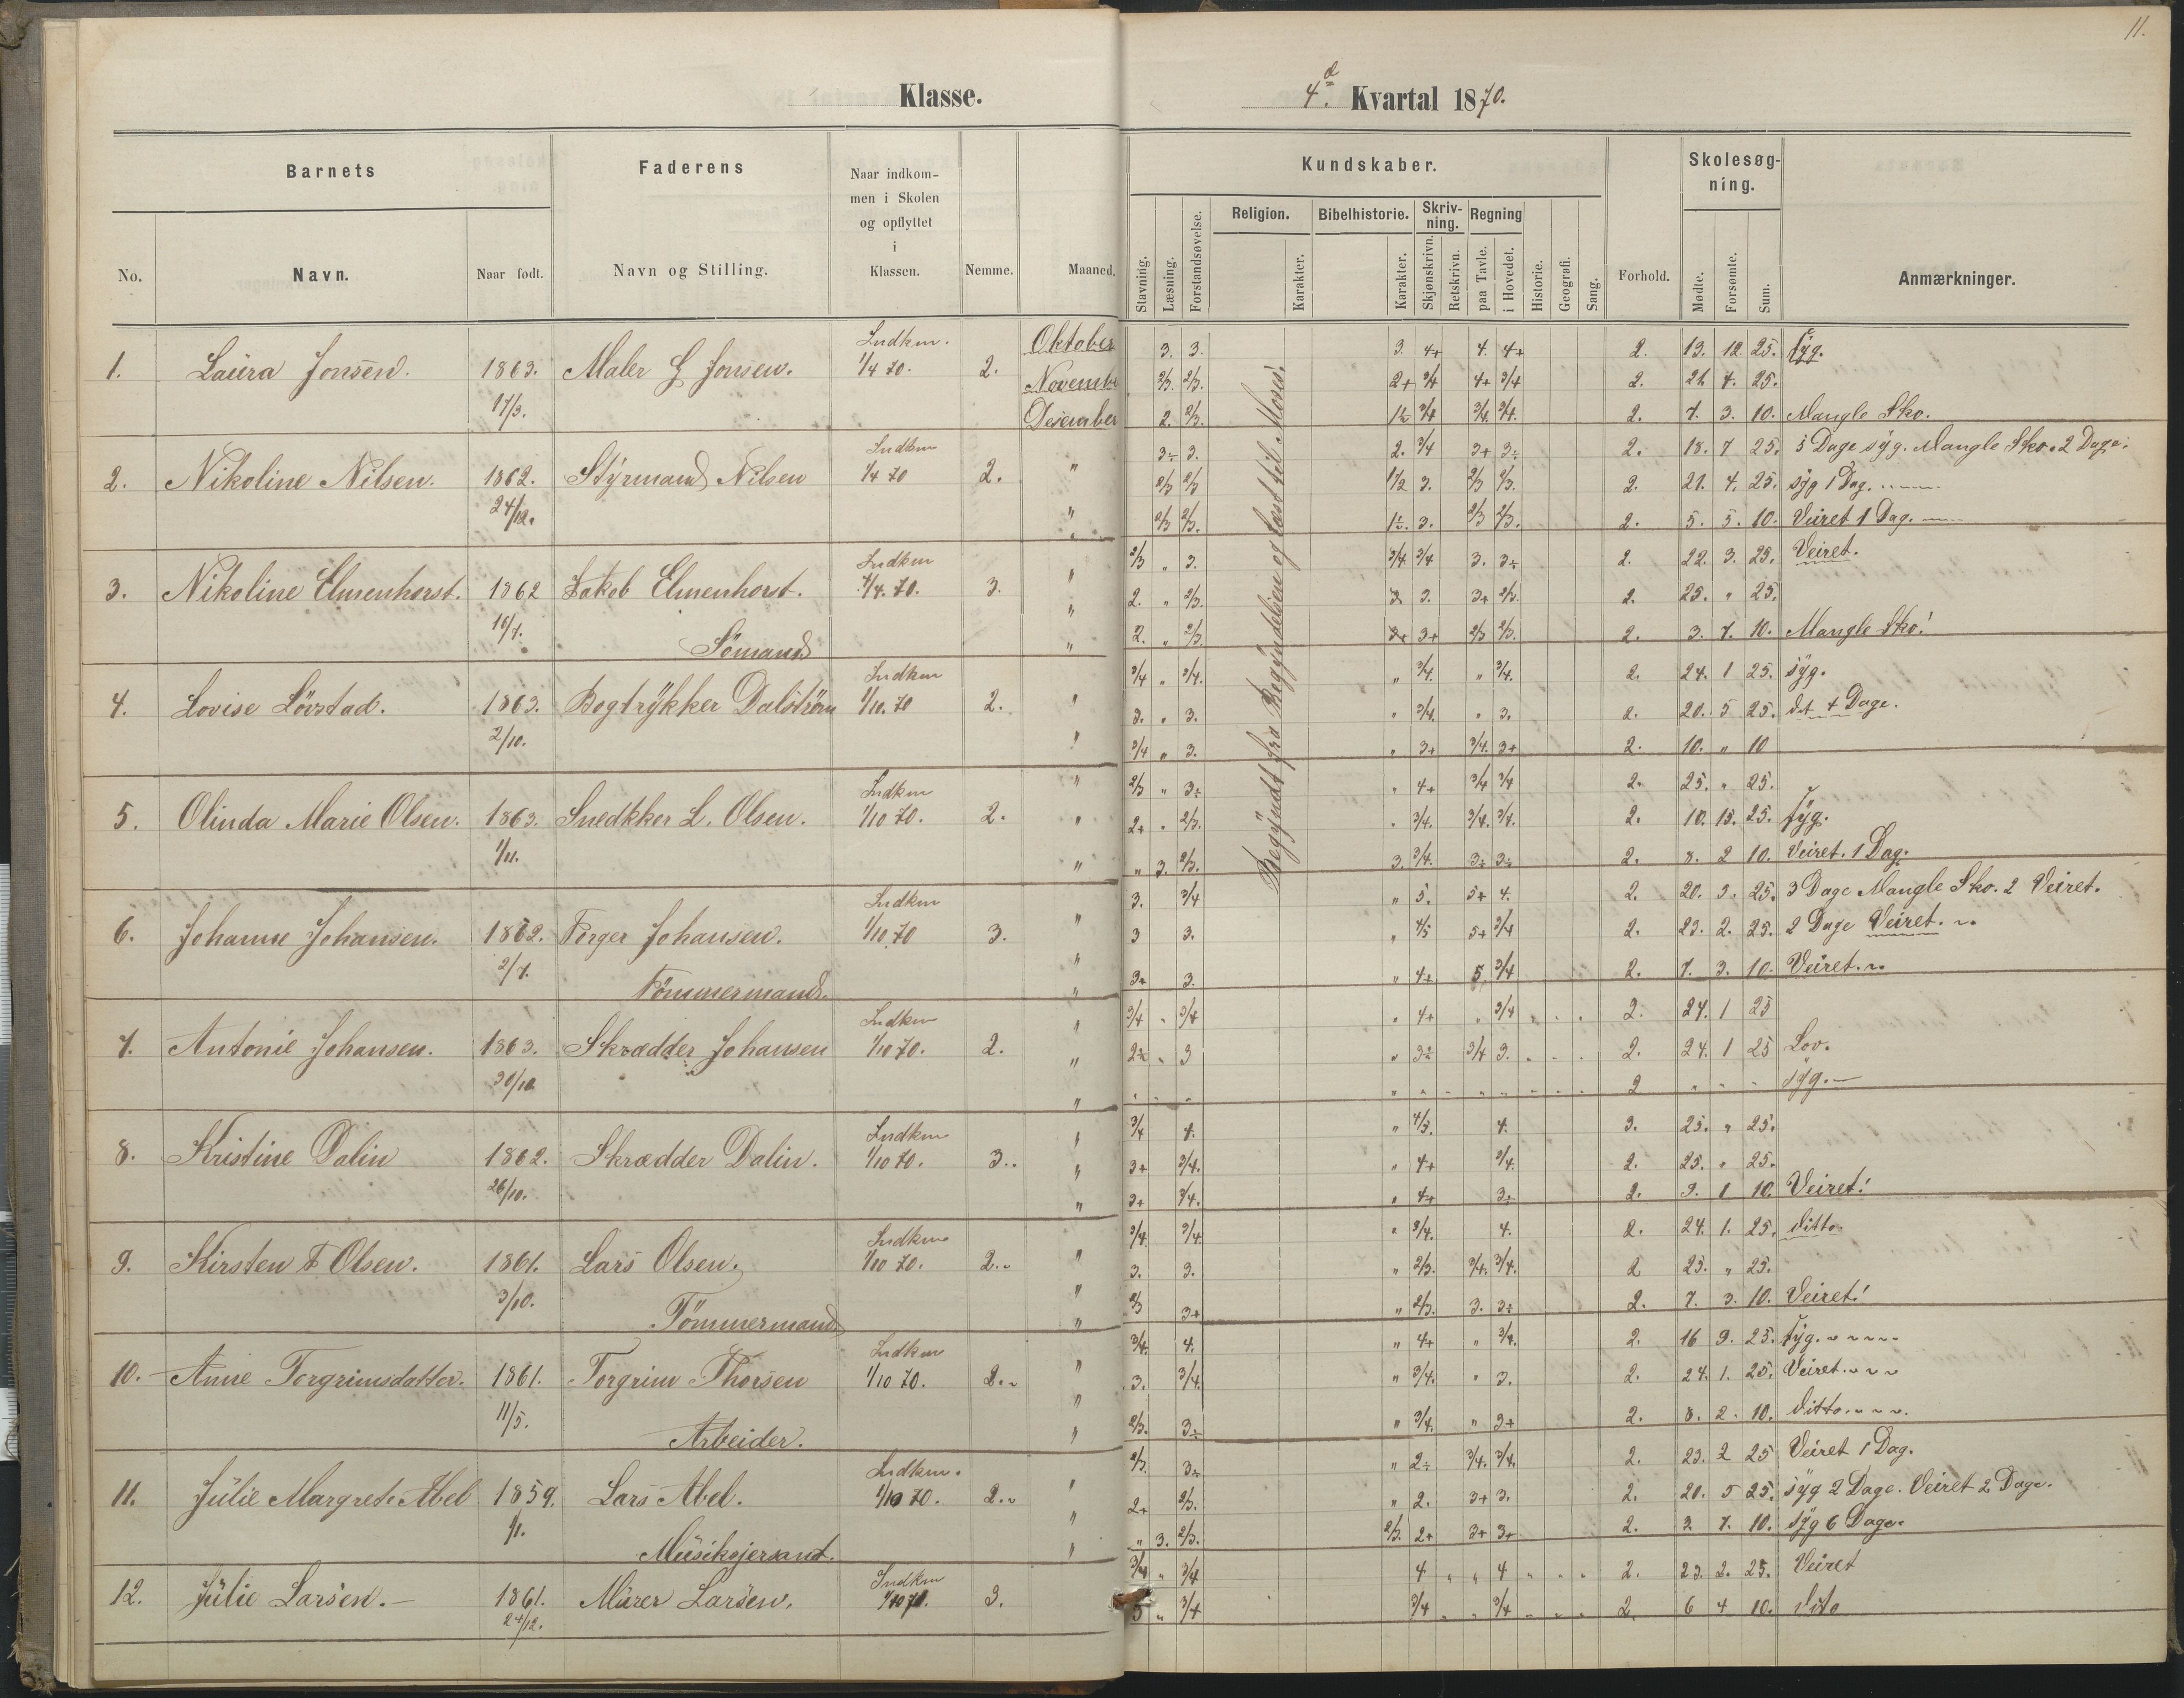 11.
Klasse.
4de Kvartal 1870.
Barnets
Faderens
Naar indkom-
men i Skolen
og opflyttet
i
Klassen.
Nemme.
Maaned.
No.
Navn.
Naar født.
Navn og Stilling.
Kundskaber.
Stavning.
Læsning.
Forstandsøvelse.
Religion.
Karakter.
Bibelhistorie.
Karakter.
Skriv-
ning.
Skjønskrivn.
Retskrivn.
Regning
paa Tavle.
i Hovedet.
Historie.
Geografi.
Sang.
Forhold.
Skolesøg-
ning.
Mødte.
Forsømte.
Sum.
Anmærkninger.
Begyndt fra Begyndelsen og læst til Moses.
1. Laura Jonsen. 1863. 17/3. Maler G Jonsen. Indkm. 1/4 70. 2.
Oktober 3. 3. 3. 4+ 4. 4+ 2. 13. 12. 25. syg.
November 2/3. 2/3. 2+ 3/4 4+ 3/4 2. 21. 4. 25.
Desember 2. 2/3. 1½ 3/4 3/4. 3/4. 2. 7. 3. 10. Mangle Sko.
2. Nikoline Nilsen. 1862. 24/12. Styrmand Nilsen Indkm 1/4 70 2.
" 3÷ 3. 2. 3/4 3+ 3÷ 2. 18. 7 25. 5 Dage syg. Mangle Sko. 2 Dage.
" 2/3 2/3 1½ 3. 2/3 2/3. 2. 21. 4. 25. syg 1 Dag.
" 2/3 2/3. 1½. 3. 2/3 2/3. 2. 5. 5. 10. Veiret 1 Dag.
3. Nikoline Elmenhorst. 1862 16/7. Jakob Elmenhorst. Sömand Indkm 1/4. 70. 3.
" 2/3 " 3. 3/4 3/4 3. 3÷ 2. 22. 3. 25. Veiret.
" 2. " 2/3. 3. 3. 3+ 2/3. 2. 25. " 25.
" 2. " 2/3. 3+ 3+ 2/3 2/3. 2. 3. 7. 10. Mangle Sko!
4. Lovise Lövstad. 1863. 2/10. Bogtrykker Dalström Indkm 1/10. 70 2.
" 3/4 " 3/4. " 3/4. " 3/4. 2. 24. 1 25. syg.
" 3. " 3. " 3/4. " 3. 2. 20. 5 25. dt 4 Dage.
" 3/4 " 3. " 3+ 3/4. 3+ 2. 10. " 10
5. Olinda Marie Olsen. 1863. 1/11. Snedkker L. Olsen. Indkm 1/10 70. 2.
" 2/3 " 3÷ " 4+ 3/4 3/4 2. 25. " 25.
" 2+ " 2/3. " 3/4. 3/4. 3/4. 2. 10. 15. 25. syg.
" " 3. 2/3. 3. 3/4. 3÷ 3÷ 2. 8. 2 10. Veiret. 1 Dag.
6. Johanne Johansen. 1862. 2/7. Torger Johansen. Tömmermand. Indkm 1/10 70 3.
" 3. 3/4 " 5. 5+ 4. 2. 20. 5. 25. 3 Dage Mangle Sko. 2 Veiret.
" 3 3. " 4/5 5+ 3/4 2. 23. 2. 25. 2 Dage Veiret.
" 3+ 3. " 4+ 5, 3/4 2. 7. 3. 10. Veiret.
7. Antonie Johansen. 1863. 30/10. Skrædder Johansen Indkm 1/10 70. 2.
" 3/4 " 3/4 " 4+ " 3/4 " " " 2. 24. 1 25
" 2÷ " 3 " 3÷ 3/4 3. " " " 2. 24. 1 25 Lov.
" " " " " " " " " " " " 2 " " " syg.
8. Kristine Dalin 1862. 26/10. Skrædder Dalin. Indkm 1/10 70. 3.
" 3/4 4. " 4/5. 4. 3. 25. " 25.
" 3+ 3/4. " 4+ 3/4. 2. 25. " 25.
" 3+ 3/4. " 4+ 3÷ 2. 9. 1 10. Veiret!
9. Kirsten T Olsen. 1861. 3/10. Lars Olsen. Tömmermand Indkm 1/10 70. 2.
" 3/4. 3/4. " 3/4. 4. 2. 24. 1. 25. ditto
" 3. 3. " 2/3. 3/4. 3/4. 2 25. " 25.
" 2/3 3+ " 2/3. 3. 3÷ 2. 7. 3. 10. Veiret!
10. Anne Torgrimsdatter. 1861. 11/5. Torgrim Thorsen Arbeider. Indkm 1/10 70. 2.
" 3/4. 4. " 4+ " 3/4. 2. 16 9. 25. syg.
" 3. 3/4. " 3/4. " 3. 2. 24. 1. 25. Veiret.
" 2/3. 3÷ " 3/4. " 3+ 2. 8. 2. 10. ditto.
11. Julie Margrete Abel 1859. 1/1. Lars Abel. Musikgjersant. Indkm. 1/10 70. 2.
" 2/3. 3÷ " 2÷ 3/4. 3/4. 2. 23. 2 25 Veiret 1 Dag.
" 2+ 2/3. " 2. 3+ 3. 2. 20. 5 25. syg 2 Dage. Veiret 2 Dage.
" " 3. 2/3. 2/3. 2+ 3+ 3+ 2. 3 7. 10. syg 6 Dage.
12. Julie Larsen. 1861. 24/12. Murer Larsen. Indkm 1/10 70. 3.
3/4 " 3/4 4 " " 4 " " " 2. 23. 2. 25. Veiret
5 " 3/4 3/4 " " 3/4 " " " 2. 6 4 10. dito